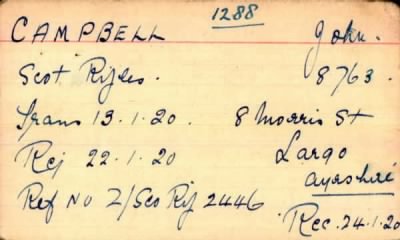 1288
CAMPBELL John.
Scot Rifles. 8763.
Trans 13.1.20. 8 Morris St
Rej 22.1.20 Largo
Ayrshire
Ref No Z/Sco Rif 2446
Rec. 24.1.20